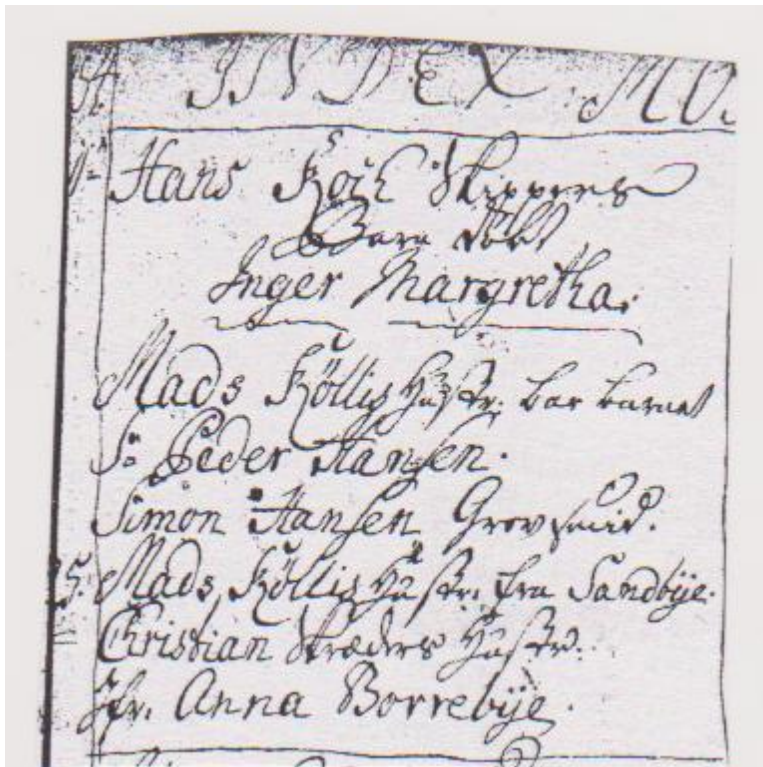 INDEX MO
Hans Koch Skippers
Barn döbt
Inger Margretha.
Mads Köllis Hustr: bar barnet
S: Peder Hansen.
Simon Hansen Grovsmid.
Mads Köllis Hustr. fra Sandbÿe.
Christian Skræders Hustr:
Jfr. Anna Borrebÿe.